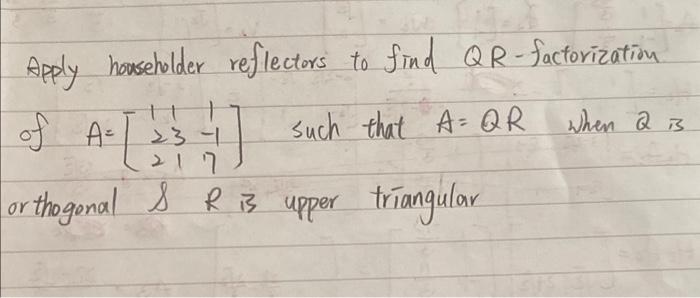 Apply householder reflectors to find QR-factorization
of A= [ 1 1 1
2 3 -1
2 1 7 ] such that A= QR when Q is
orthogonal & R is upper triangular